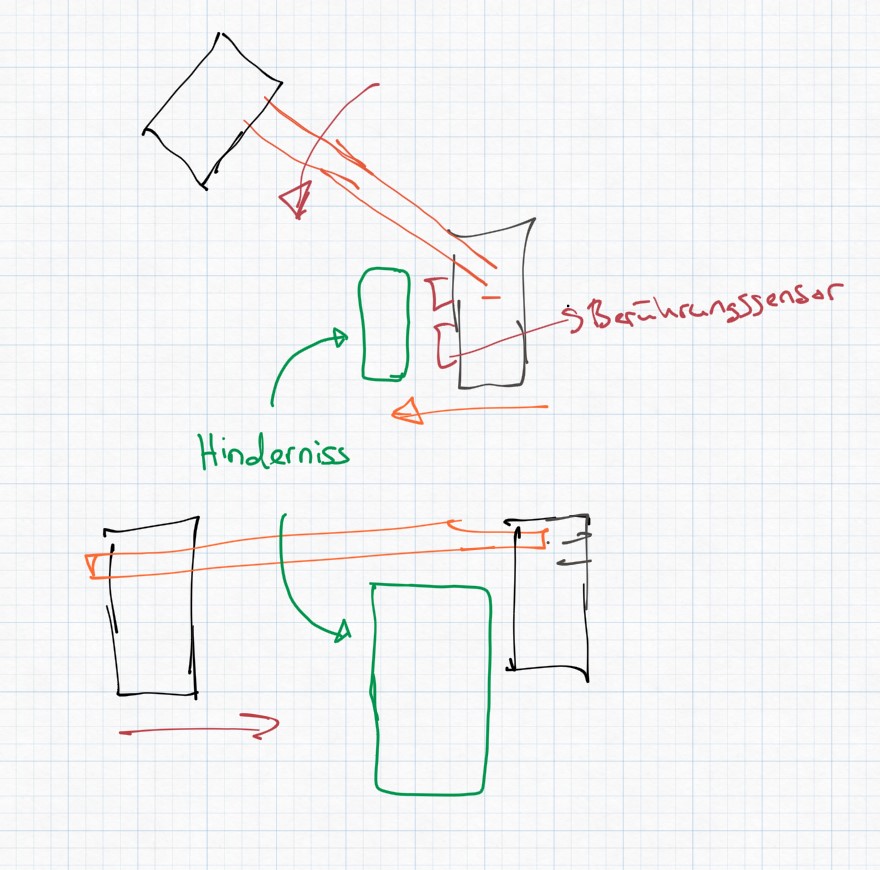 Berührungssensor
Hinderniss